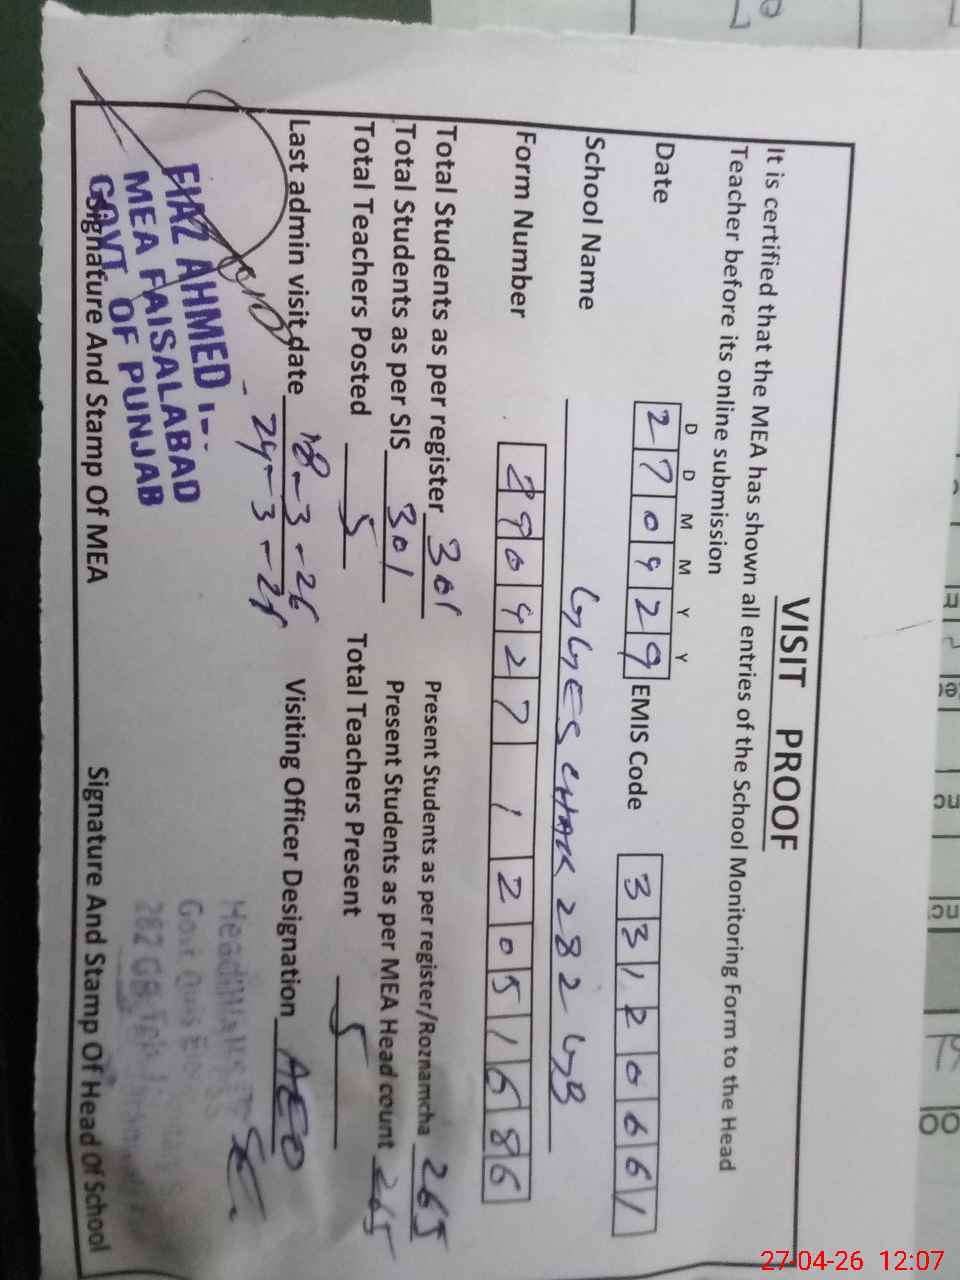 VISIT PROOF
It is certified that the MEA has shown all entries of the School Monitoring Form to the Head
Teacher before its online submission
D D M M Y Y
Date 270429 EMIS Code 33120661
School Name CHAK 282 GB
Form Number 27 1205 1686
Total Students as per register 301 Present Students as per register/Roznamcha 265
Total Students as per SIS 301 Present Students as per MEA Head count 265
Total Teachers Posted 5 Total Teachers Present 5
Last admin visit date 18-3-26 Visiting Officer Designation AEO
24-3-26
FIAZ AHMED
MEA FAISALABAD
GOVT. OF PUNJAB
Signature And Stamp Of MEA Signature And Stamp Of Head Of School
27-04-26 12:07